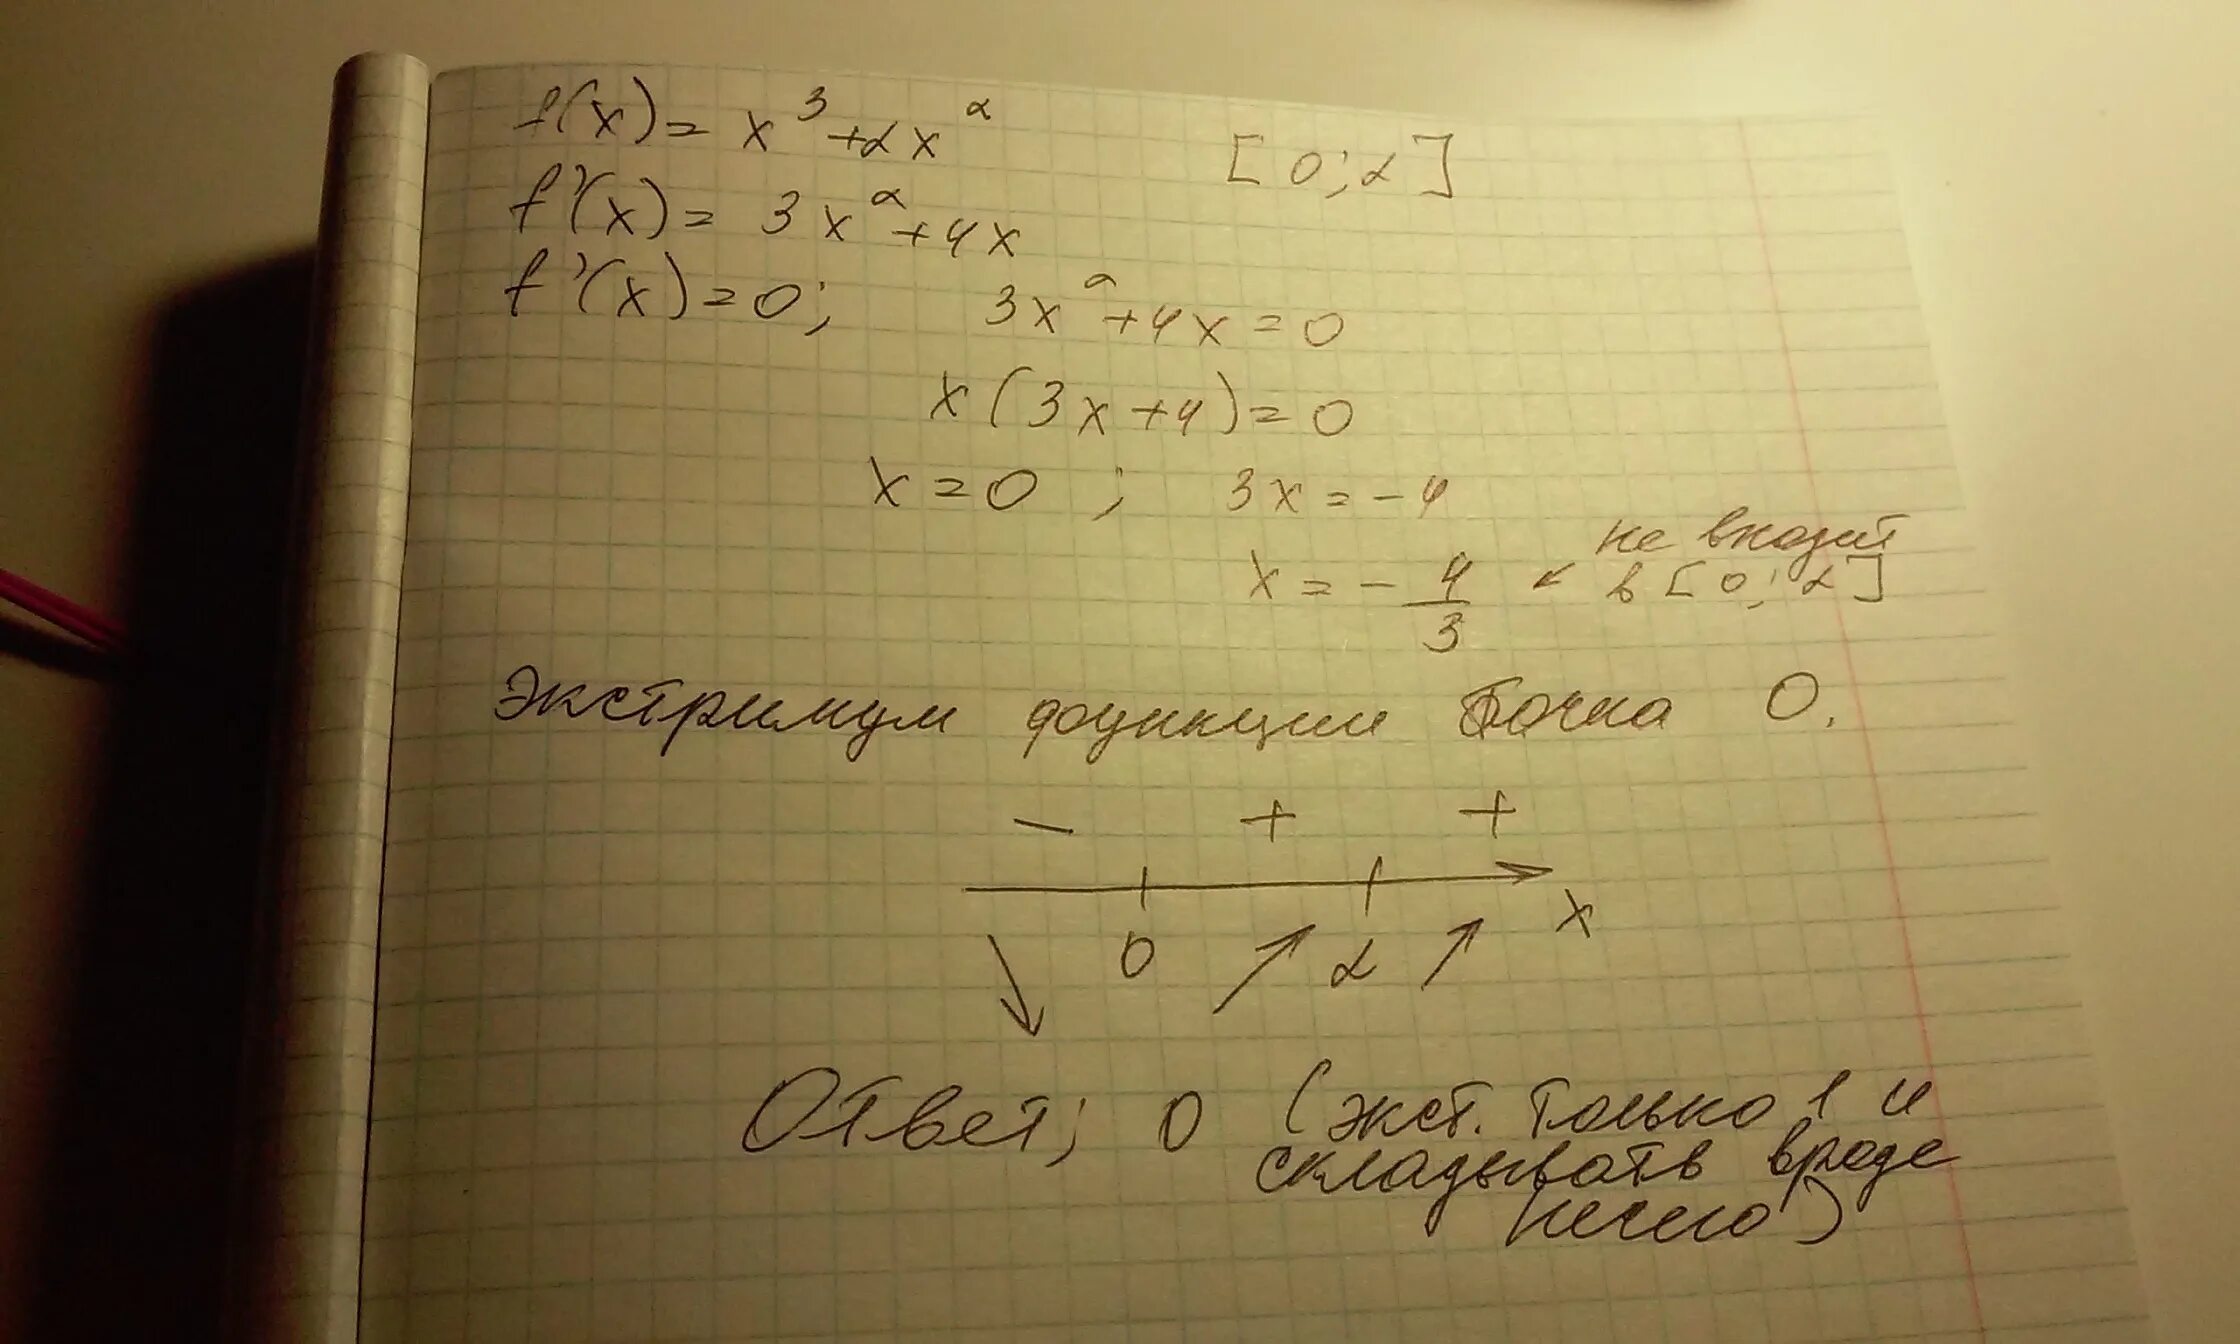 f(x) = x³ + 2x² [0; 2]
f'(x) = 3x² + 4x
f'(x) = 0; 3x² + 4x = 0
x(3x + 4) = 0
x = 0 ; 3x = -4
x = - 4/3 ← не входит в [0; 2]
Экстримум функции точка 0.
- + +
0 2 x
Ответ; 0 (экст. только 1 и
складывать вроде
нечего)